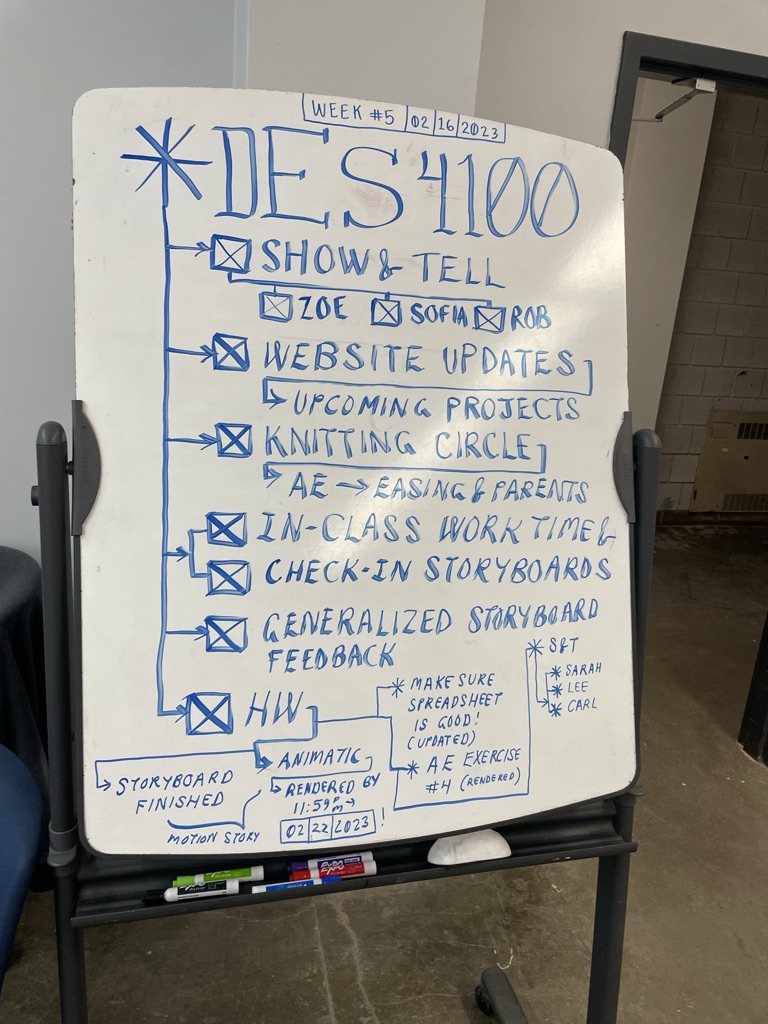 WEEK #5 02 16 2023
*DES4100
SHOW & TELL
ZOE SOFIA ROB
WEBSITE UPDATES
UPCOMING PROJECTS
KNITTING CIRCLE
AE → EASING & PARENTS
IN-CLASS WORK TIME &
CHECK-IN STORYBOARDS
GENERALIZED STORYBOARD
FEEDBACK
HW
STORYBOARD
FINISHED
ANIMATIC
RENDERED BY
11:59PM →
02 22 2023 !
MOTION STORY
* MAKE SURE
SPREADSHEET
IS GOOD!
(UPDATED)
* AE EXERCISE
#4 (RENDERED)
* S&T
* SARAH
* LEE
* CARL
EXPO
EXPO